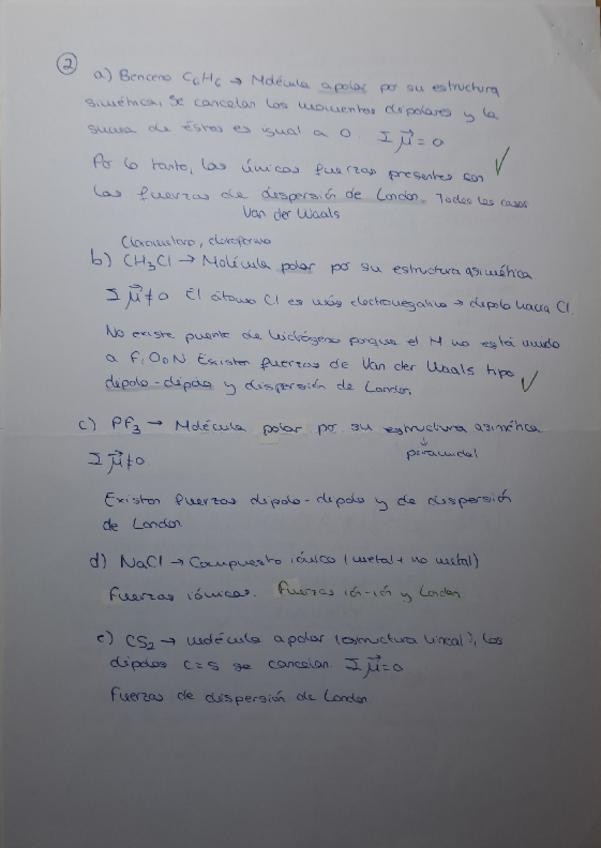 2
a) Benceno C6H6 → Molécula apolar por su estructura
simétrica. Se cancelan los momentos dipolares y la
suma de éstos es igual a 0. Σ μ⃗ = 0
Por lo tanto, las únicas fuerzas presentes son
las fuerzas de dispersión de London. Todos los casos
Van der Waals
b) CH3Cl → Molécula polar por su estructura asimétrica
Σ μ⃗ ≠ 0 El átomo Cl es más electronegativo → dipolo hacia Cl.
No existe puente de hidrógeno porque el H no está unido
a F, O o N Existen fuerzas de Van der Waals tipo
dipolo-dipolo y dispersión de London.
c) PF3 → Molécula polar por su estructura asimétrica
↓
piramidal
Σ μ⃗ ≠ 0
Existen fuerzas dipolo-dipolo y de dispersión
de London
d) NaCl → Compuesto iónico (metal + no metal)
Fuerzas iónicas. Fuerzas ión-ión y London
e) CS2 → molécula apolar (estructura lineal), los
dipolos C=S se cancelan. Σ μ⃗ = 0
Fuerzas de dispersión de London